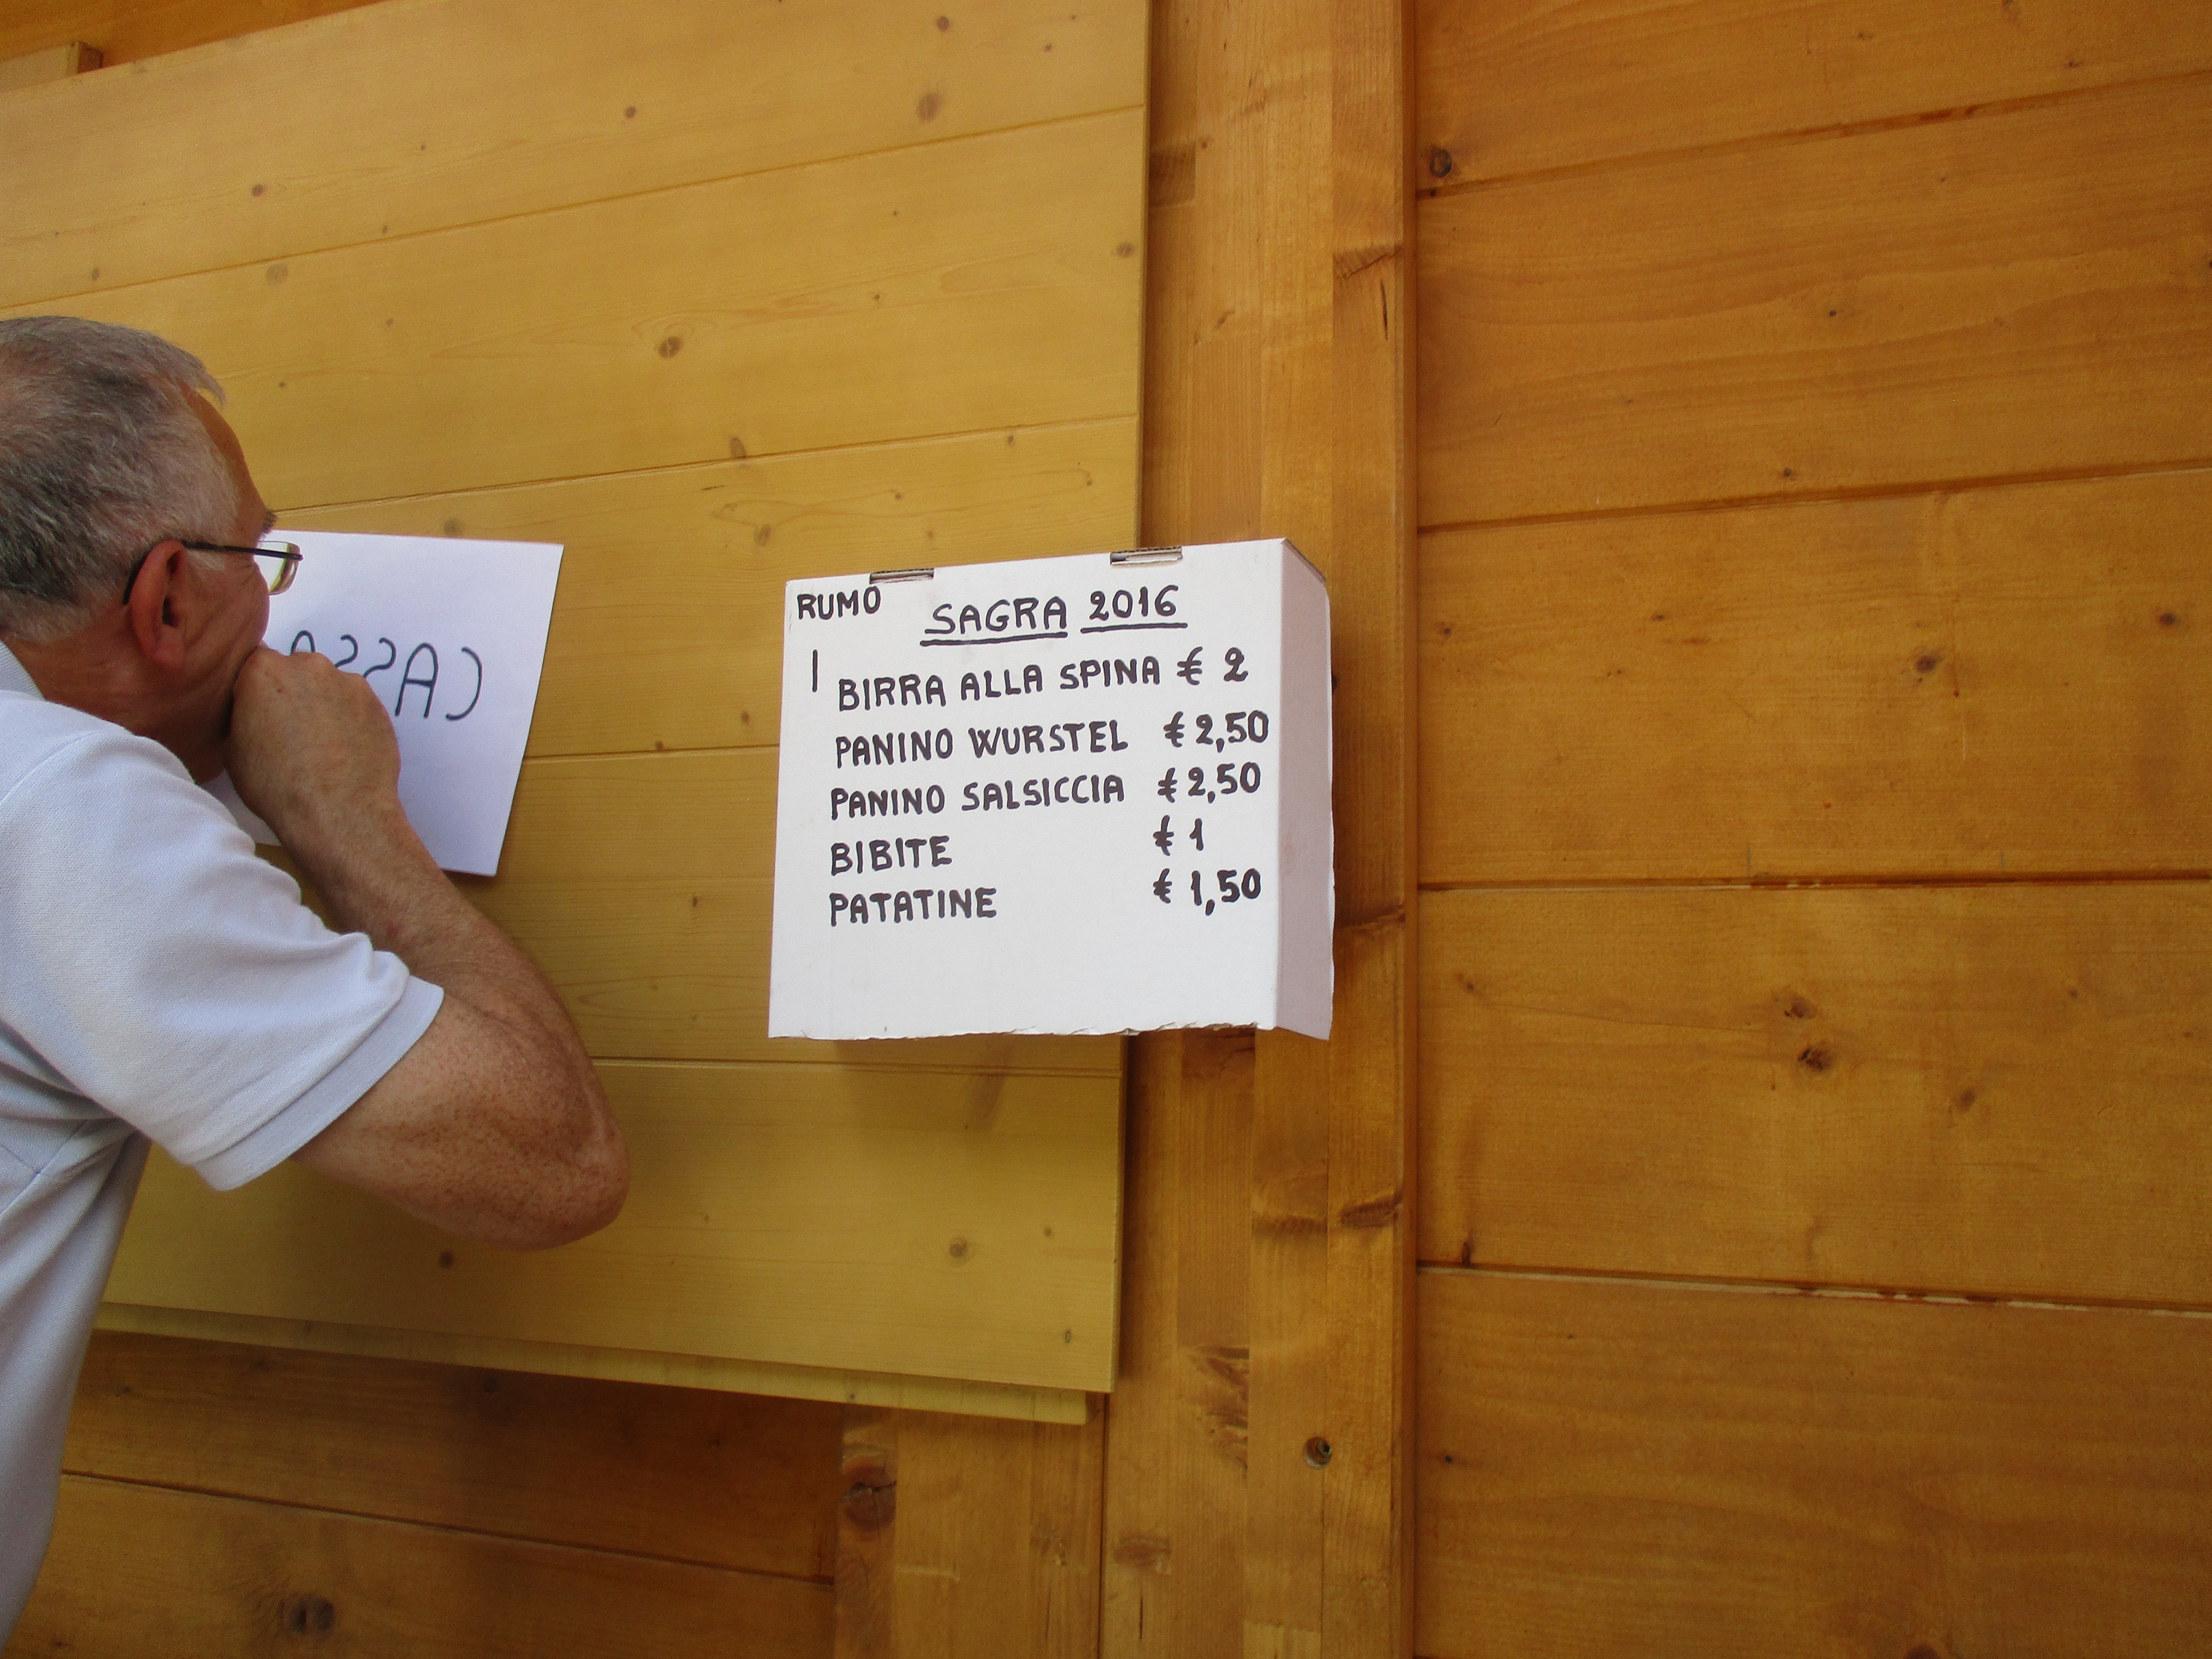 CASSA
RUMO
SAGRA 2016
BIRRA ALLA SPINA € 2
PANINO WURSTEL € 2,50
PANINO SALSICCIA € 2,50
BIBITE € 1
PATATINE € 1,50